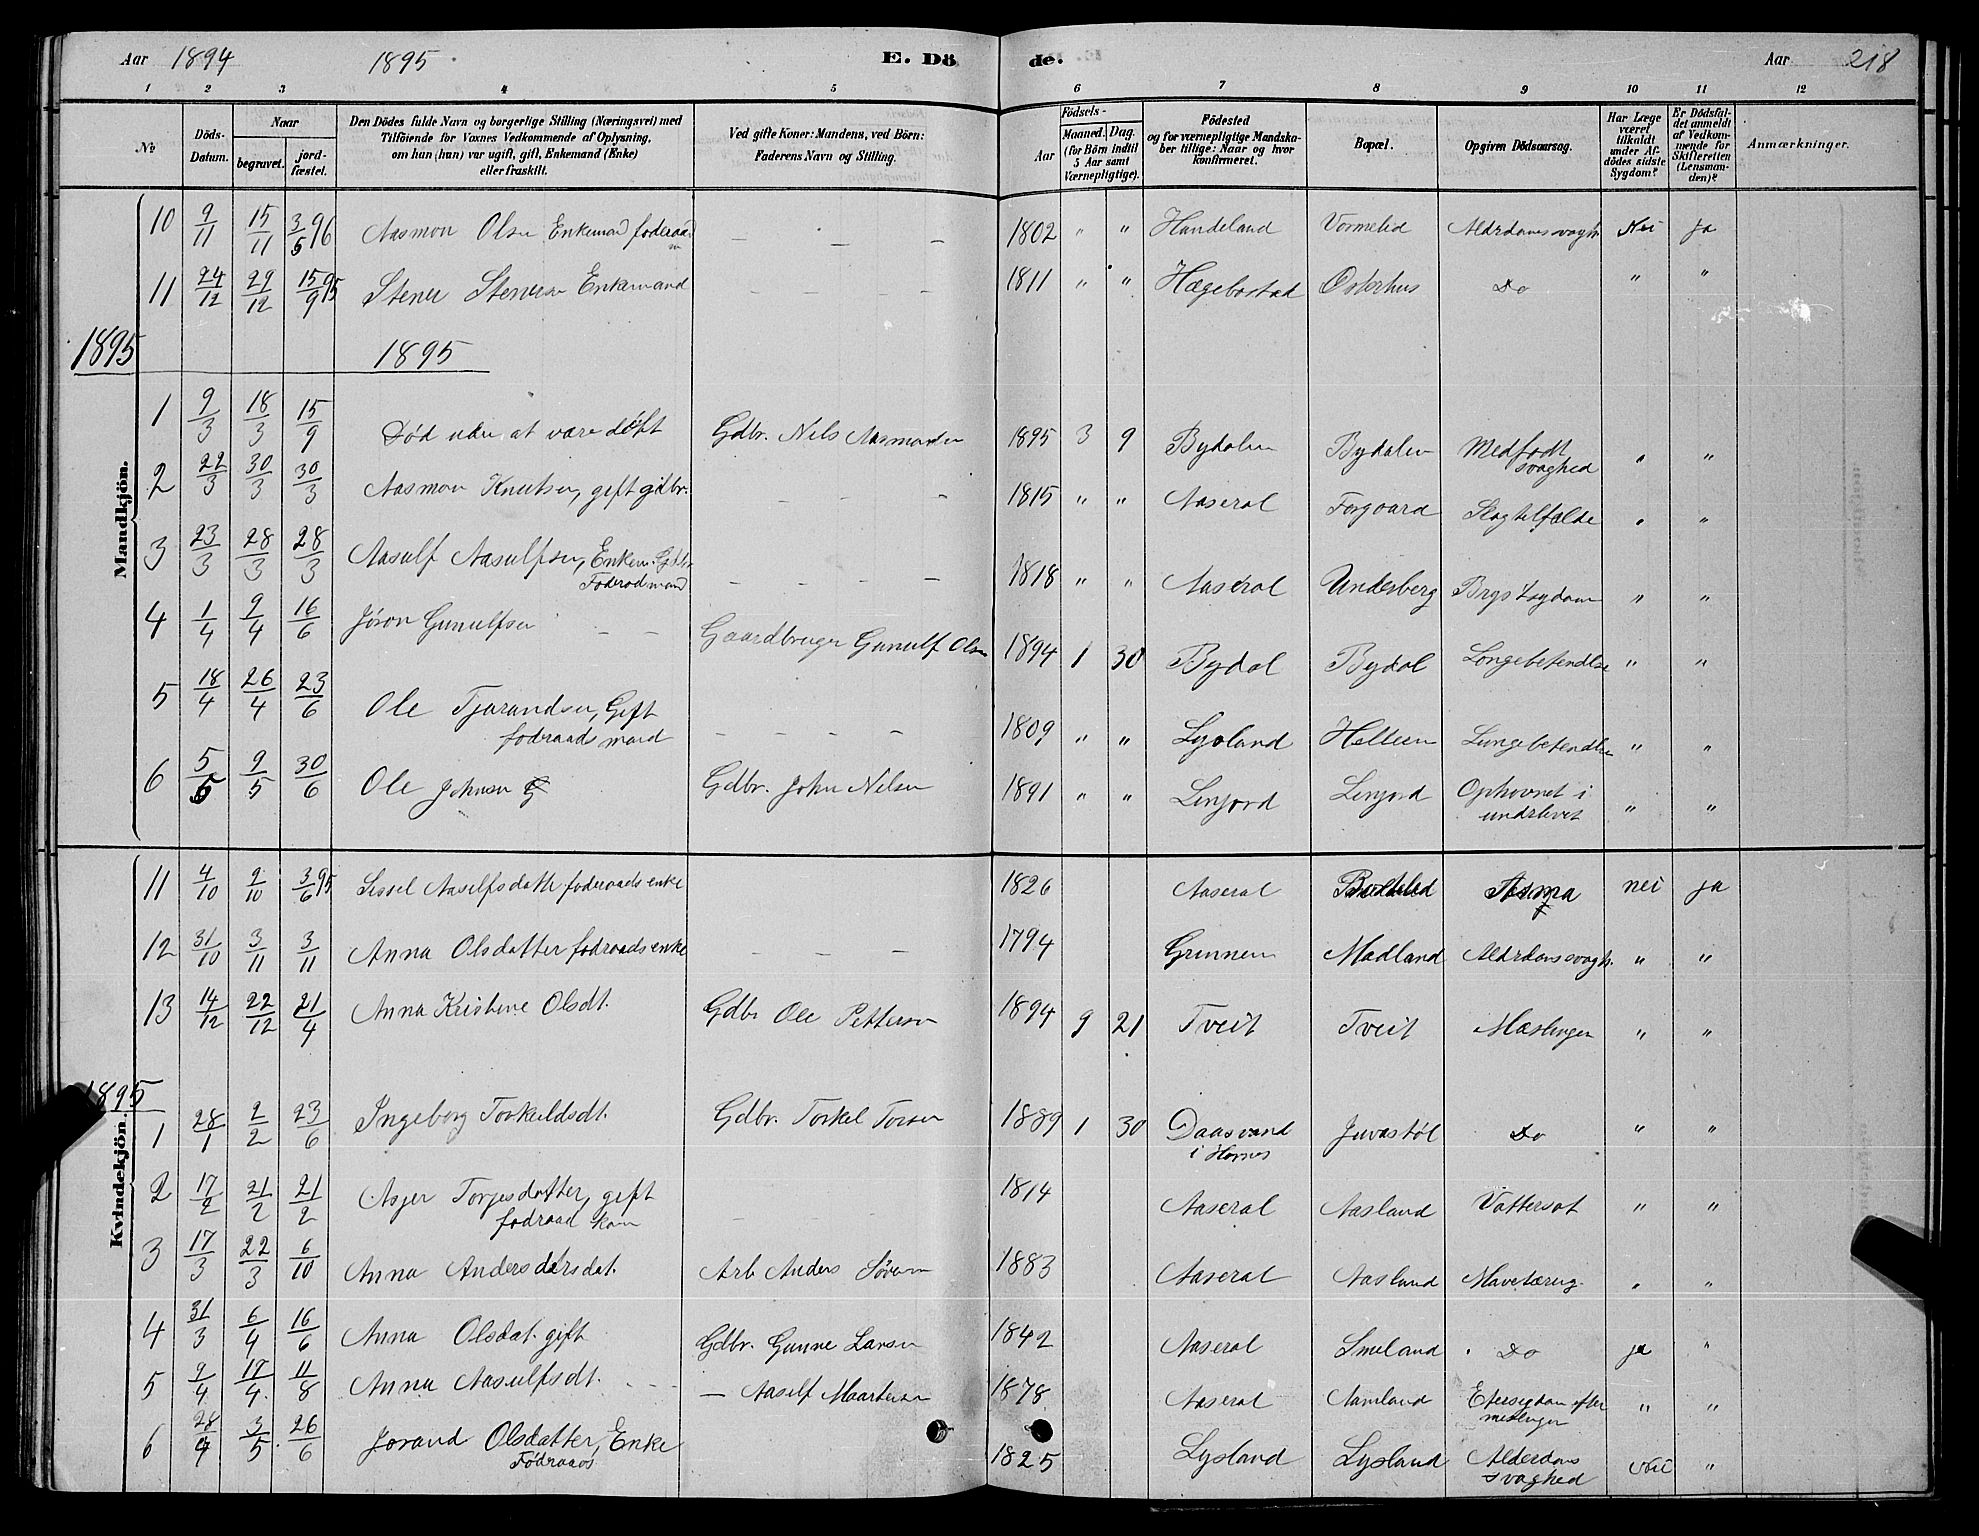 Aar 1894 1895 E. Dö de. Aar 218
1 2 3 4 5 6 7 8 9 10 11 12
No
Döds-Datum.
Naar
begravet. jordfæstet.
Den Dödes fulde Navn og borgerlige Stilling (Næringsvei) med
Tilföiende for Voxnes Vedkommende af Oplysning,
om han (hun) var ugift, gift, Enkemand (Enke)
eller fraskilt.
Ved gifte Koner: Mandens, ved Börn:
Faderens Navn og Stilling.
Födsels-
Aar Maaned. Dag.
(for Börn indtil
5 Aar samt
Værnepligtige).
Födested
og for værnepligtige Mandskaber tillige: Naar og hvor
konfirmeret.
Bopæl.
Opgiven Dödsaarsag.
Har Læge været tilkaldt under Afdödes sidste Sygdom?
Er Dödsfaldet anmeldt af Vedkommende for Skifteretten (Lensmanden)?
Anmærkninger.
Mandkjön.
10 9/11 15/11 3/5 96 Aasmon Olsen Enkemand foderaad m — — — 1802 " " Handeland Vormelid Aldrdomssvagh Nei Ja
11 24/12 29/12 15/9 95 Stener Stenersen Enkemand — — — 1811 " " Hægebostad Osterhus Do " "
1895 1895
1 9/3 18/3 15/9 Død uden at være døft Gdbr. Nils Aasmundsen 1895 3 9 Bydalen Bydalen Medfødt svaghed " "
2 22/3 30/3 30/3 Aasmon Knutsen, gift gdbr. — — — 1815 " " Aaseral Forgaard Slagtilfælde " "
3 23/3 28/3 28/3 Aasulf Aasulfsen, Enkem. Gdbr. Foderodmand — — — — 1818 " " Aaseral Underberg Brystsygdom " "
4 1/4 9/4 16/6 Jøron Gunulfsen — — Gaardbruger Gunulf Olsen 1894 1 30 Bydal Bydal Longebetendlse " "
5 18/4 26/4 23/6 Ole Tjarandsen, Gift fodraads mand — — — — 1809 " " Lysland Helleen Lungebetendlse " "
6 5/5 9/5 30/6 Ole Johnsen Gdbr. John Nilsen 1891 " " Linjord Linjord Ophovnet i underlivet " "
Kvindekjön.
11 4/10 9/10 3/6 95 Sissel Aasulfsdatte foderaads enke 1826 Aaseral Asma nei ja
12 31/10 3/11 3/11 Anna Olsdatter fodraads enke — — — 1794 Grunnen Madland Aldrdomssvagh. " "
13 14/12 22/12 21/4 Anna Kristene Olsdt. Gdbr Ole Pettersen 1894 9 21 Tveit Tveit Mæslinger " "
1895
1 28/1 2/2 23/6 Ingeborg Torkeldsdt. Gdbr. Torkel Torsen 1889 1 30 Daasvand i Hornes Juvastøl Do " "
2 17/2 21/2 21/2 Asger Torjesdatter, gift fodraad kone — — 1814 Aaseral Aasland Vattersot " "
3 17/3 22/3 6/10 Anna Andersdarsdat. Arb Anders Sørensen 1883 Aaseral Aasland Mavetæring " "
4 31/3 6/4 16/6 Anna Olsdat. gift Gdbr. Gunne Larsen 1842 Aaseral Smeland " Do ja "
5 9/4 17/4 11/8 Anna Aasulfsdt. — — — Aaself Maartensen 1878 Aaseral Aamland Etersygdom efter meslinger " "
6 28/4 3/5 26/6 Jorand Olsdatter, Enke Fødraads 1825 Lysland Lysland Alderdoms svaghed Nei "